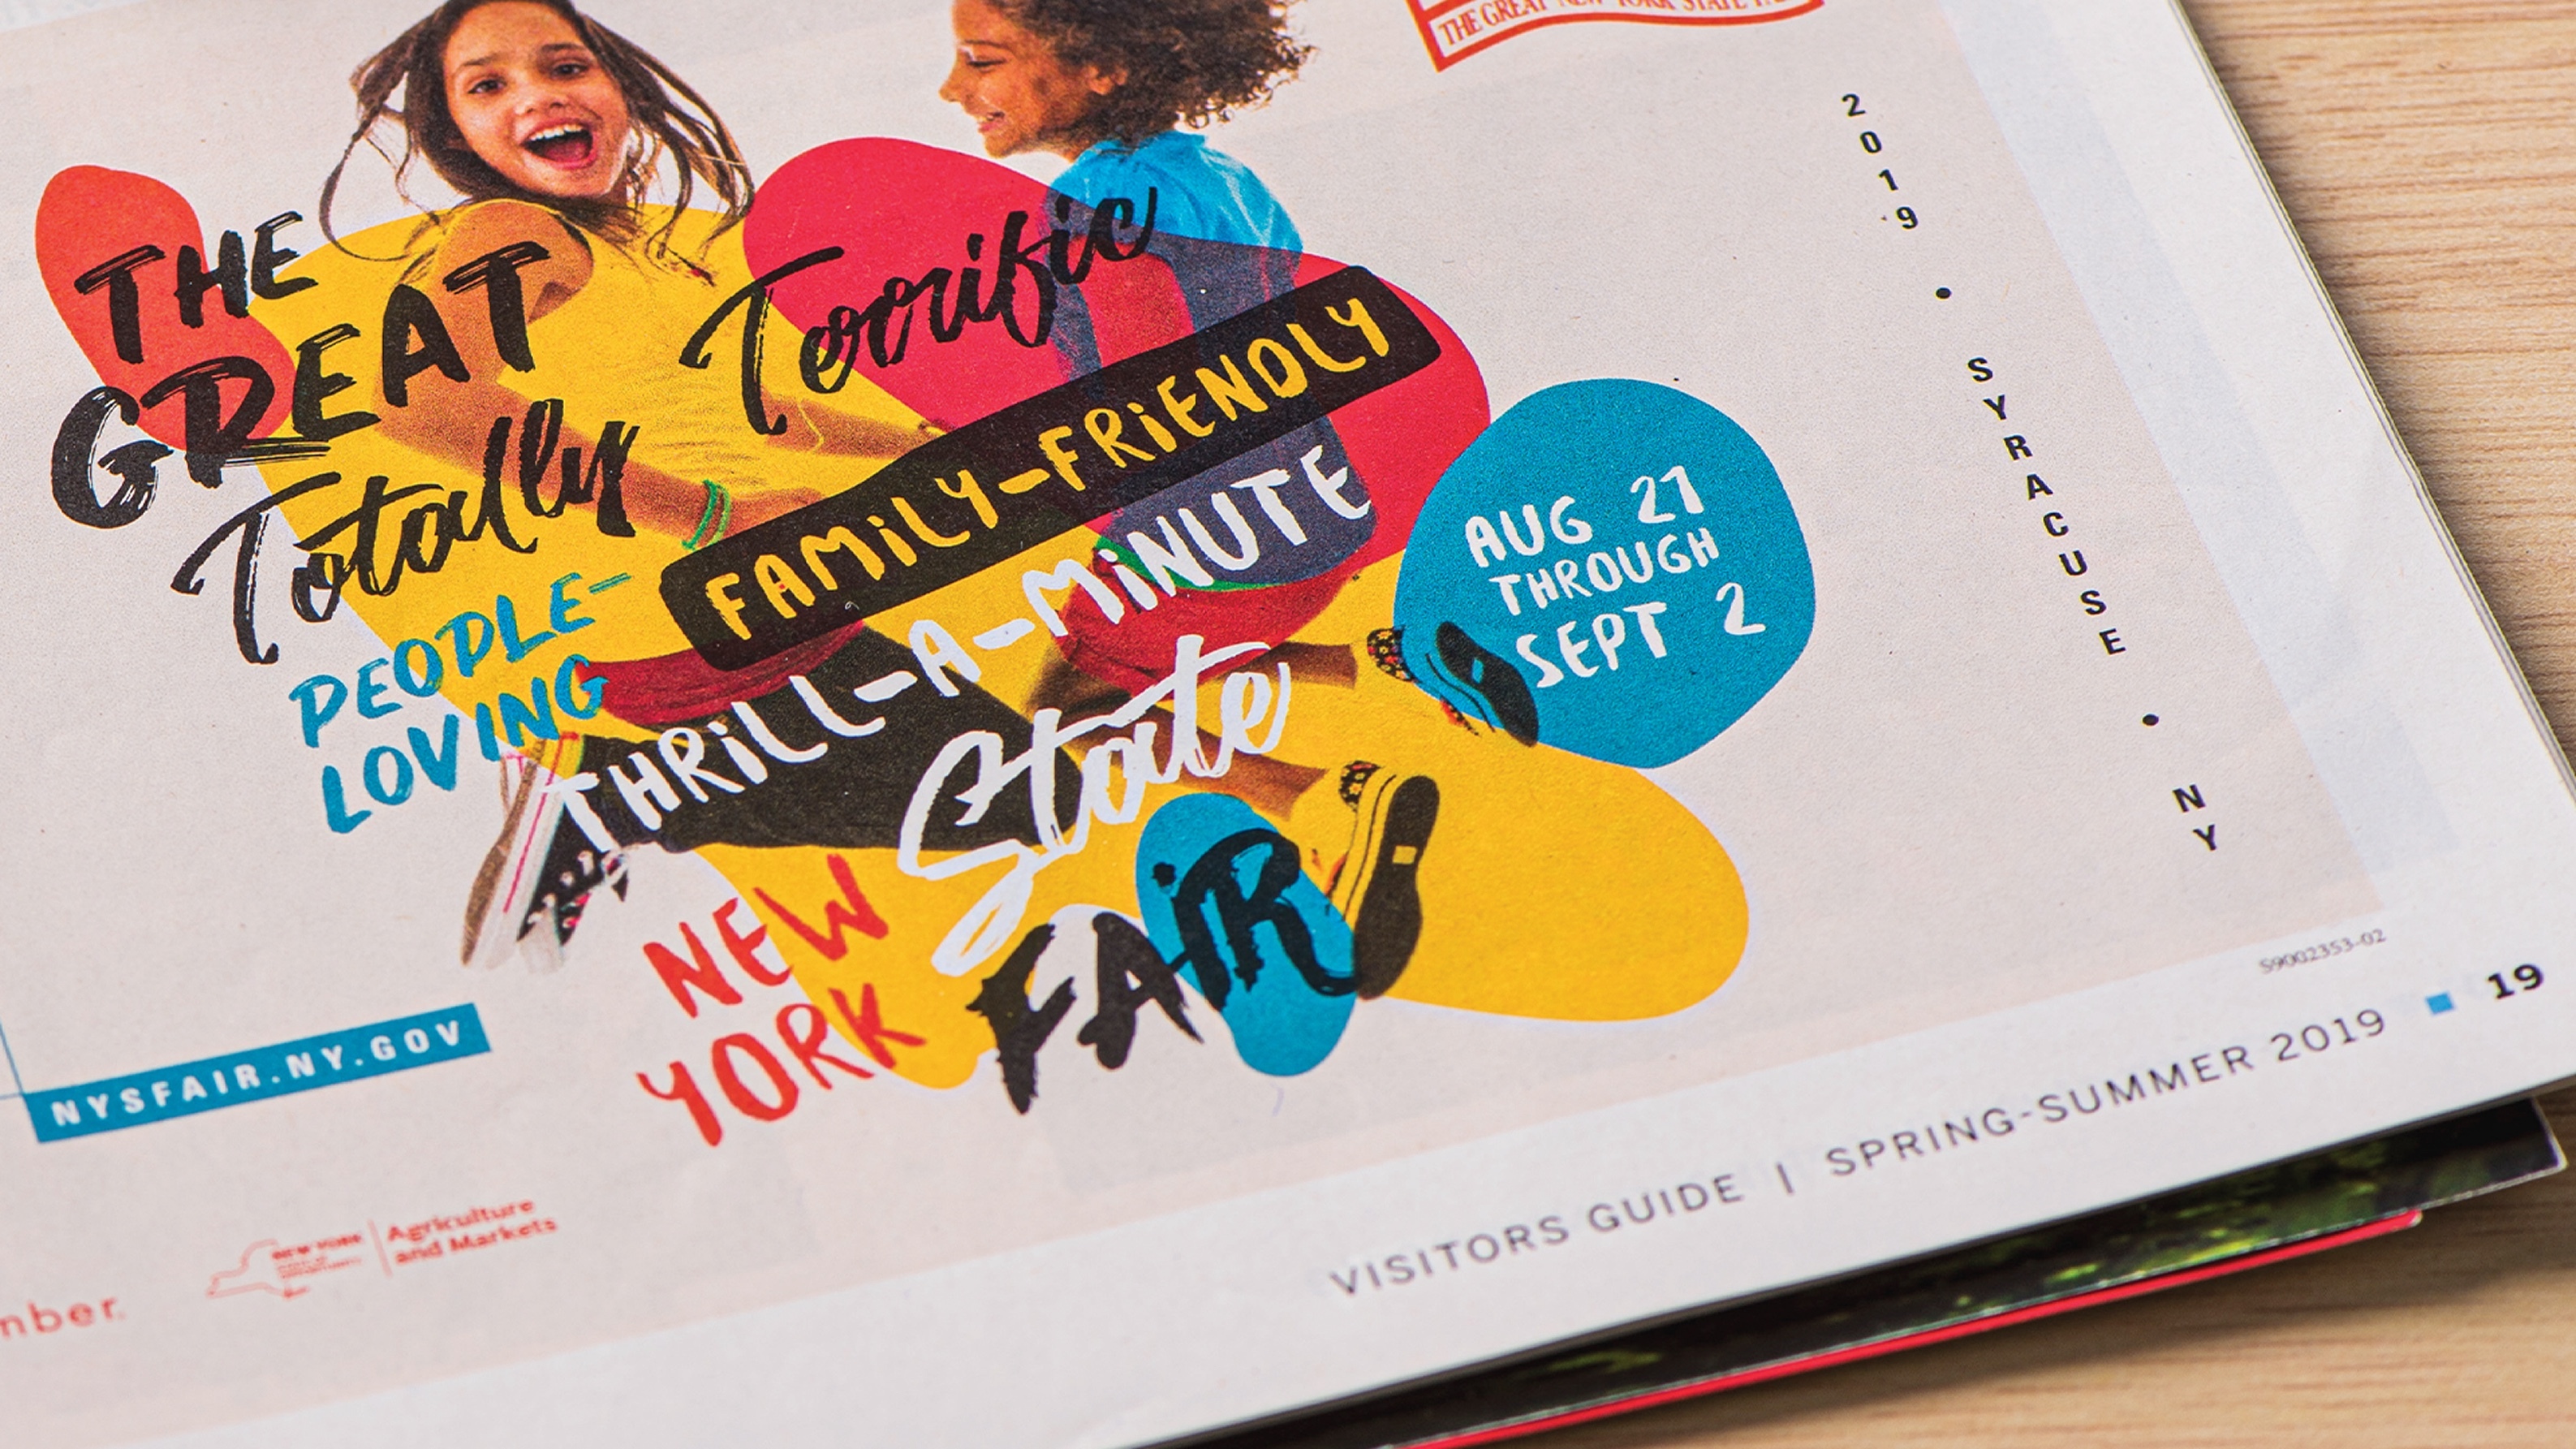 THE GREAT NEW YORK STATE FAIR
THE
GREAT
Totally
Terrific
PEOPLE-
LOVING
FAMiLY-FRiENDLY
THRiLL-A-MiNUTE
NEW
YORK
State
FAiR
AUG 21
THROUGH
SEPT 2
2019 • SYRACUSE • NY
NYSFAIR.NY.GOV
NEW YORK
Agriculture
and Markets
S9002353-02
VISITORS GUIDE | SPRING-SUMMER 2019 ■ 19